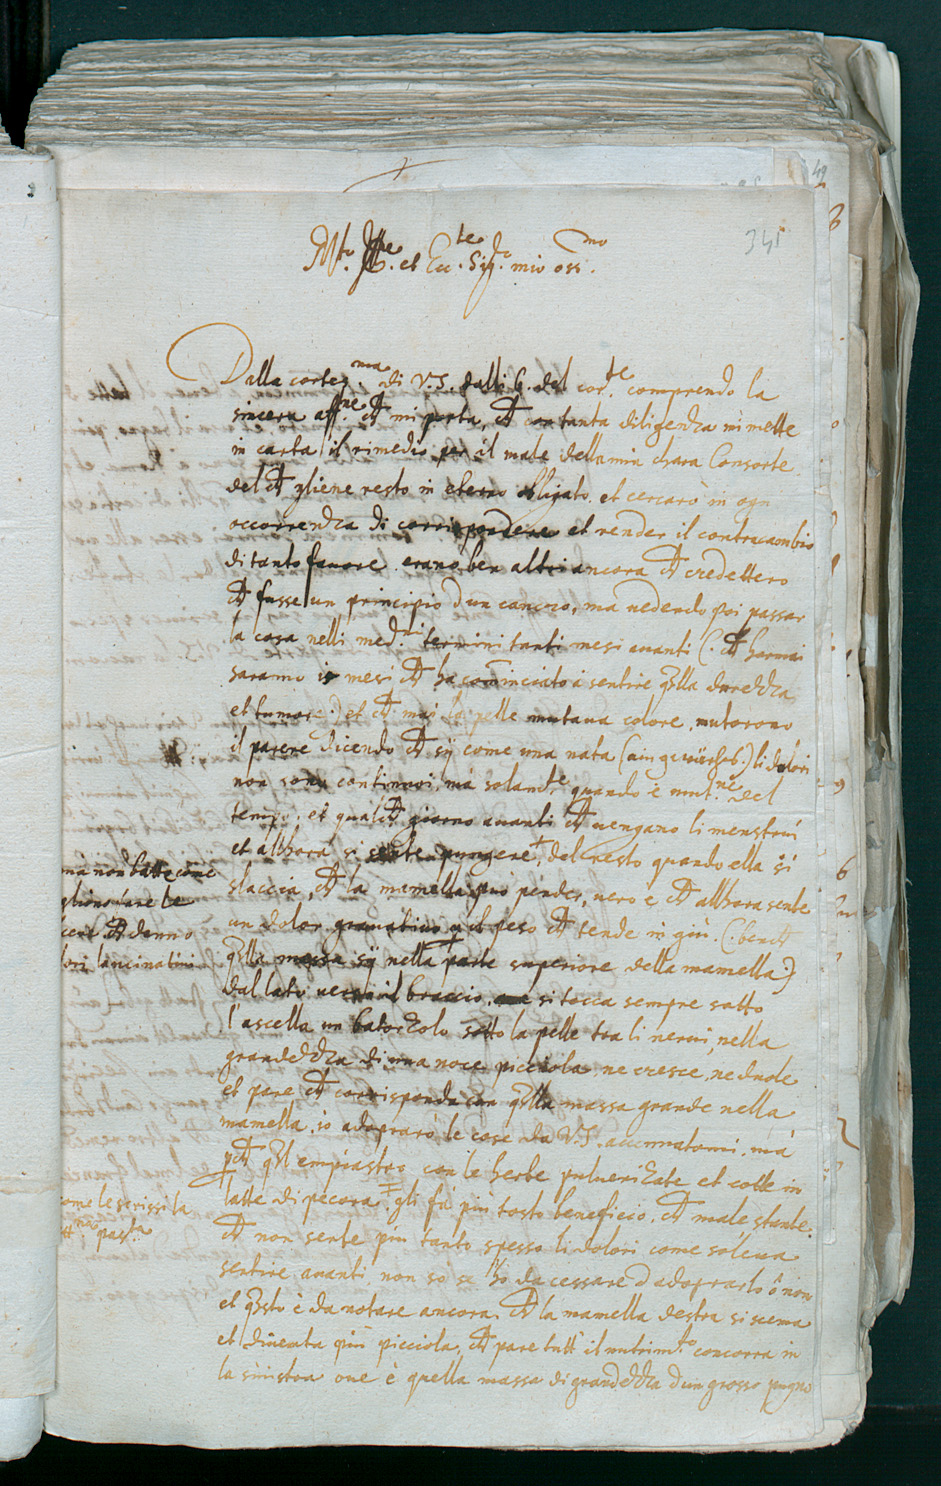 341
M.to Ill.re et Ecc.te Sig.r mio oss.mo
Dalla cortes.ma di V.S. dalli 6. del cor.te comprendo la
sincera aff.ne ch mi porta, ch con tanta diligenza mi mette
in carta il rimedio per il male della mia chara Consorte
del ch gliene resto in eterno obligato. et cercarò in ogn
occorrenza di corrispondere et render il contracambio
di tanto favore. erano ben altri ancora ch credettero
ch fusse un principio d'un cancro, ma vedendo poi passar
la cosa nelli med.mi termini tanti mesi avanti (. ch hormai
saranno mesi ch ha cominciato à sentire qlla durezza
et tumore.) et ch mai la pelle mutava colore, mutorono
il parere dicendo ch sÿ come una nata li dolori
non sono continovi, mà solam.te quando è mut.ne del
tempo. et qualch giorno avanti ch vengano li menstrui
et allhora si sente pungere +, del resto quando ella si
mà non batte come
slaccia, ch la mamella può pender, vero è ch allhora sente
gliono fare le
un dolor gravativo p il peso ch tende in giù. (. bench
ch danno
qlla massa sÿ nella parte superiore della mamella.)
lori lancinativi
dal lato verso il braccio. si tocca sempre sotto
l'ascella un batozzolo sotto la pelle tra li nervi, nella
grandezza di una noce picciola, ne cresce, ne duole
et pare ch corrisponda con qlla massa grande nella
mamella, io adoprarò le cose da V.S. accennatomi, mà
pch ql empiastro con le herbe pulverizate et cotte in
come le scrissi la
latte di pecora ‡ gli fà più tosto beneficio, ch male, stante
past.a
ch non sente più tanto spesso li dolori come soleva
sentire avanti, non so se ho da cessare d'adoprarlo ò non
et qsto è da notare ancora, ch la mamella destra si scema
et diventa più picciola, ch pare tutt' il nutrim.to concorra in
la sinistra ove è quella massa di grandezza d'un grosso pugno